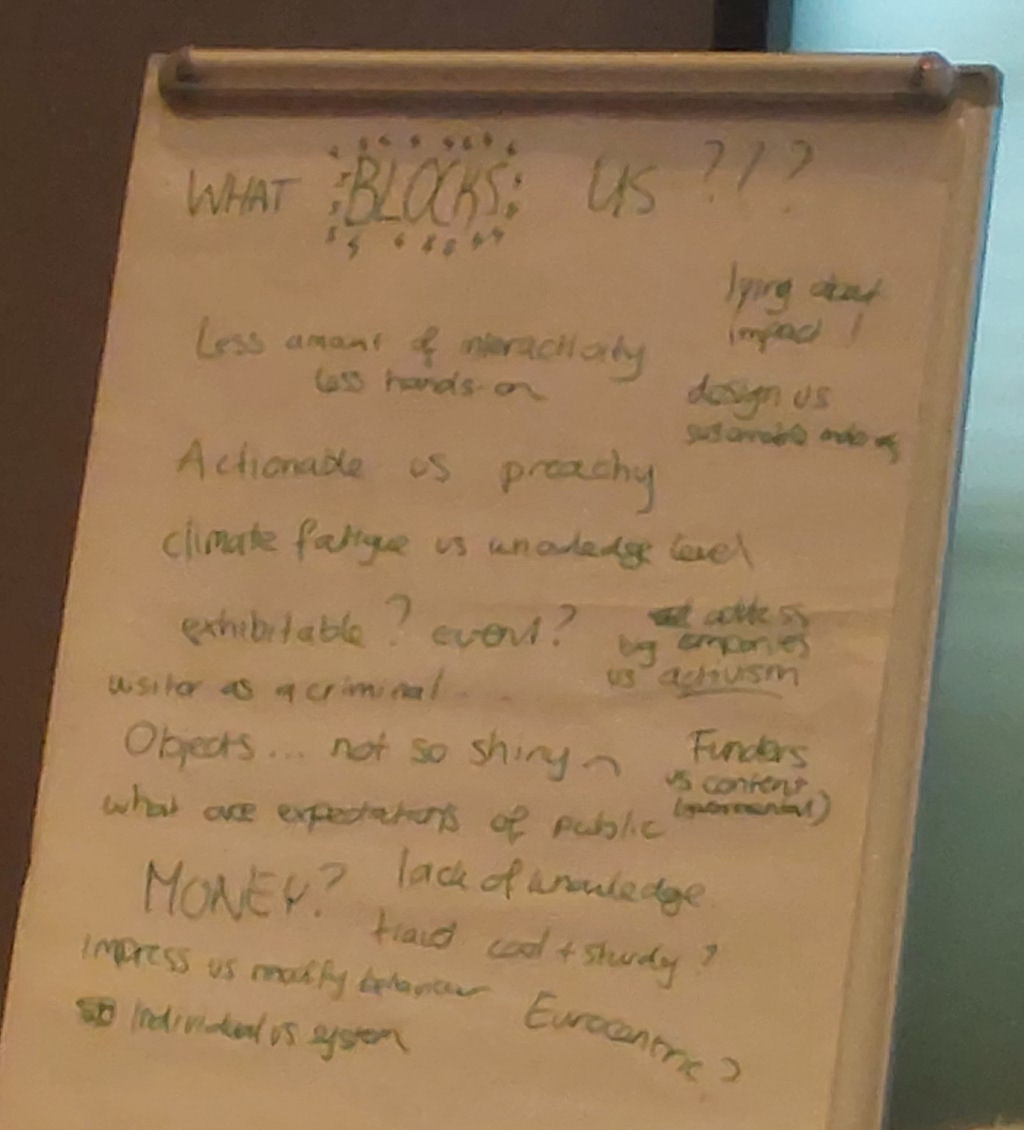 WHAT BLOCKS US ???
lying about
impact !
Less amant of interactivity
less hands-on
design vs
sustainable
Actionable vs preachy
climate fatigue vs knowledge level
exhibitable? event?
address
big companies
vs activism
visitor as a criminal
Objects... not so shiny
Funders
vs content
what are expectations of public
MONEY?
lack of knowledge
cool + sturdy?
impress vs modify behaviour
Eurocentric?
Individual vs system